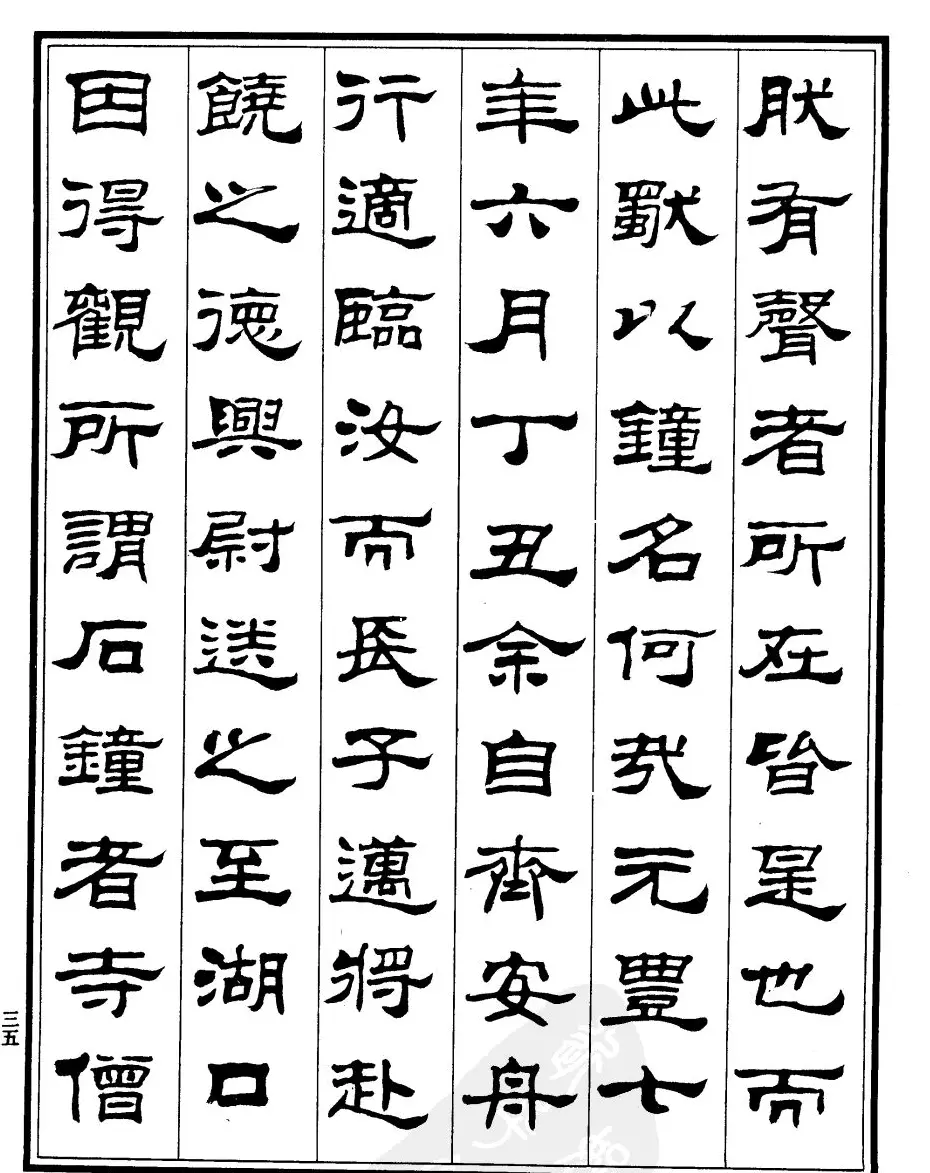 肰有聲者所在皆是也而
此獸以鐘名何哉元豐七
年六月丁丑余自齊安舟
行適臨汝而長子邁將赴
饒之德興尉送之至湖口
因得觀所謂石鐘者寺僧
三五